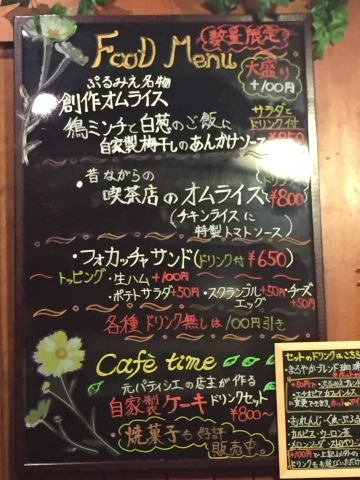 FooD Menu
数量限定
大盛り
+100円
ぷるみえ名物
創作オムライス
サラダと
ドリンク付
鶏ミンチと白葱のご飯に
自家製梅干しのあんかけソース
¥850
ドリンク
・昔ながらの
喫茶店のオムライス
¥800
(チキンライスに
特製トマトソース)
・フォカッチャサンド(ドリンク付)¥650
トッピング・生ハム+100円
・ポテトサラダ+50円・スクランブルエッグ+50円・チーズ+50円
各種ドリンク無しは100円引き
Cafe time
元パティシエの店主が作る
自家製ケーキ ドリンクセット
¥800〜
・焼菓子も好評
販売中。
セットのドリンクはこちら
・まろやかブレンド珈琲
+50円で
に変更できます
・カルピス・ウーロン茶
+100円で上記以外の
ドリンクも